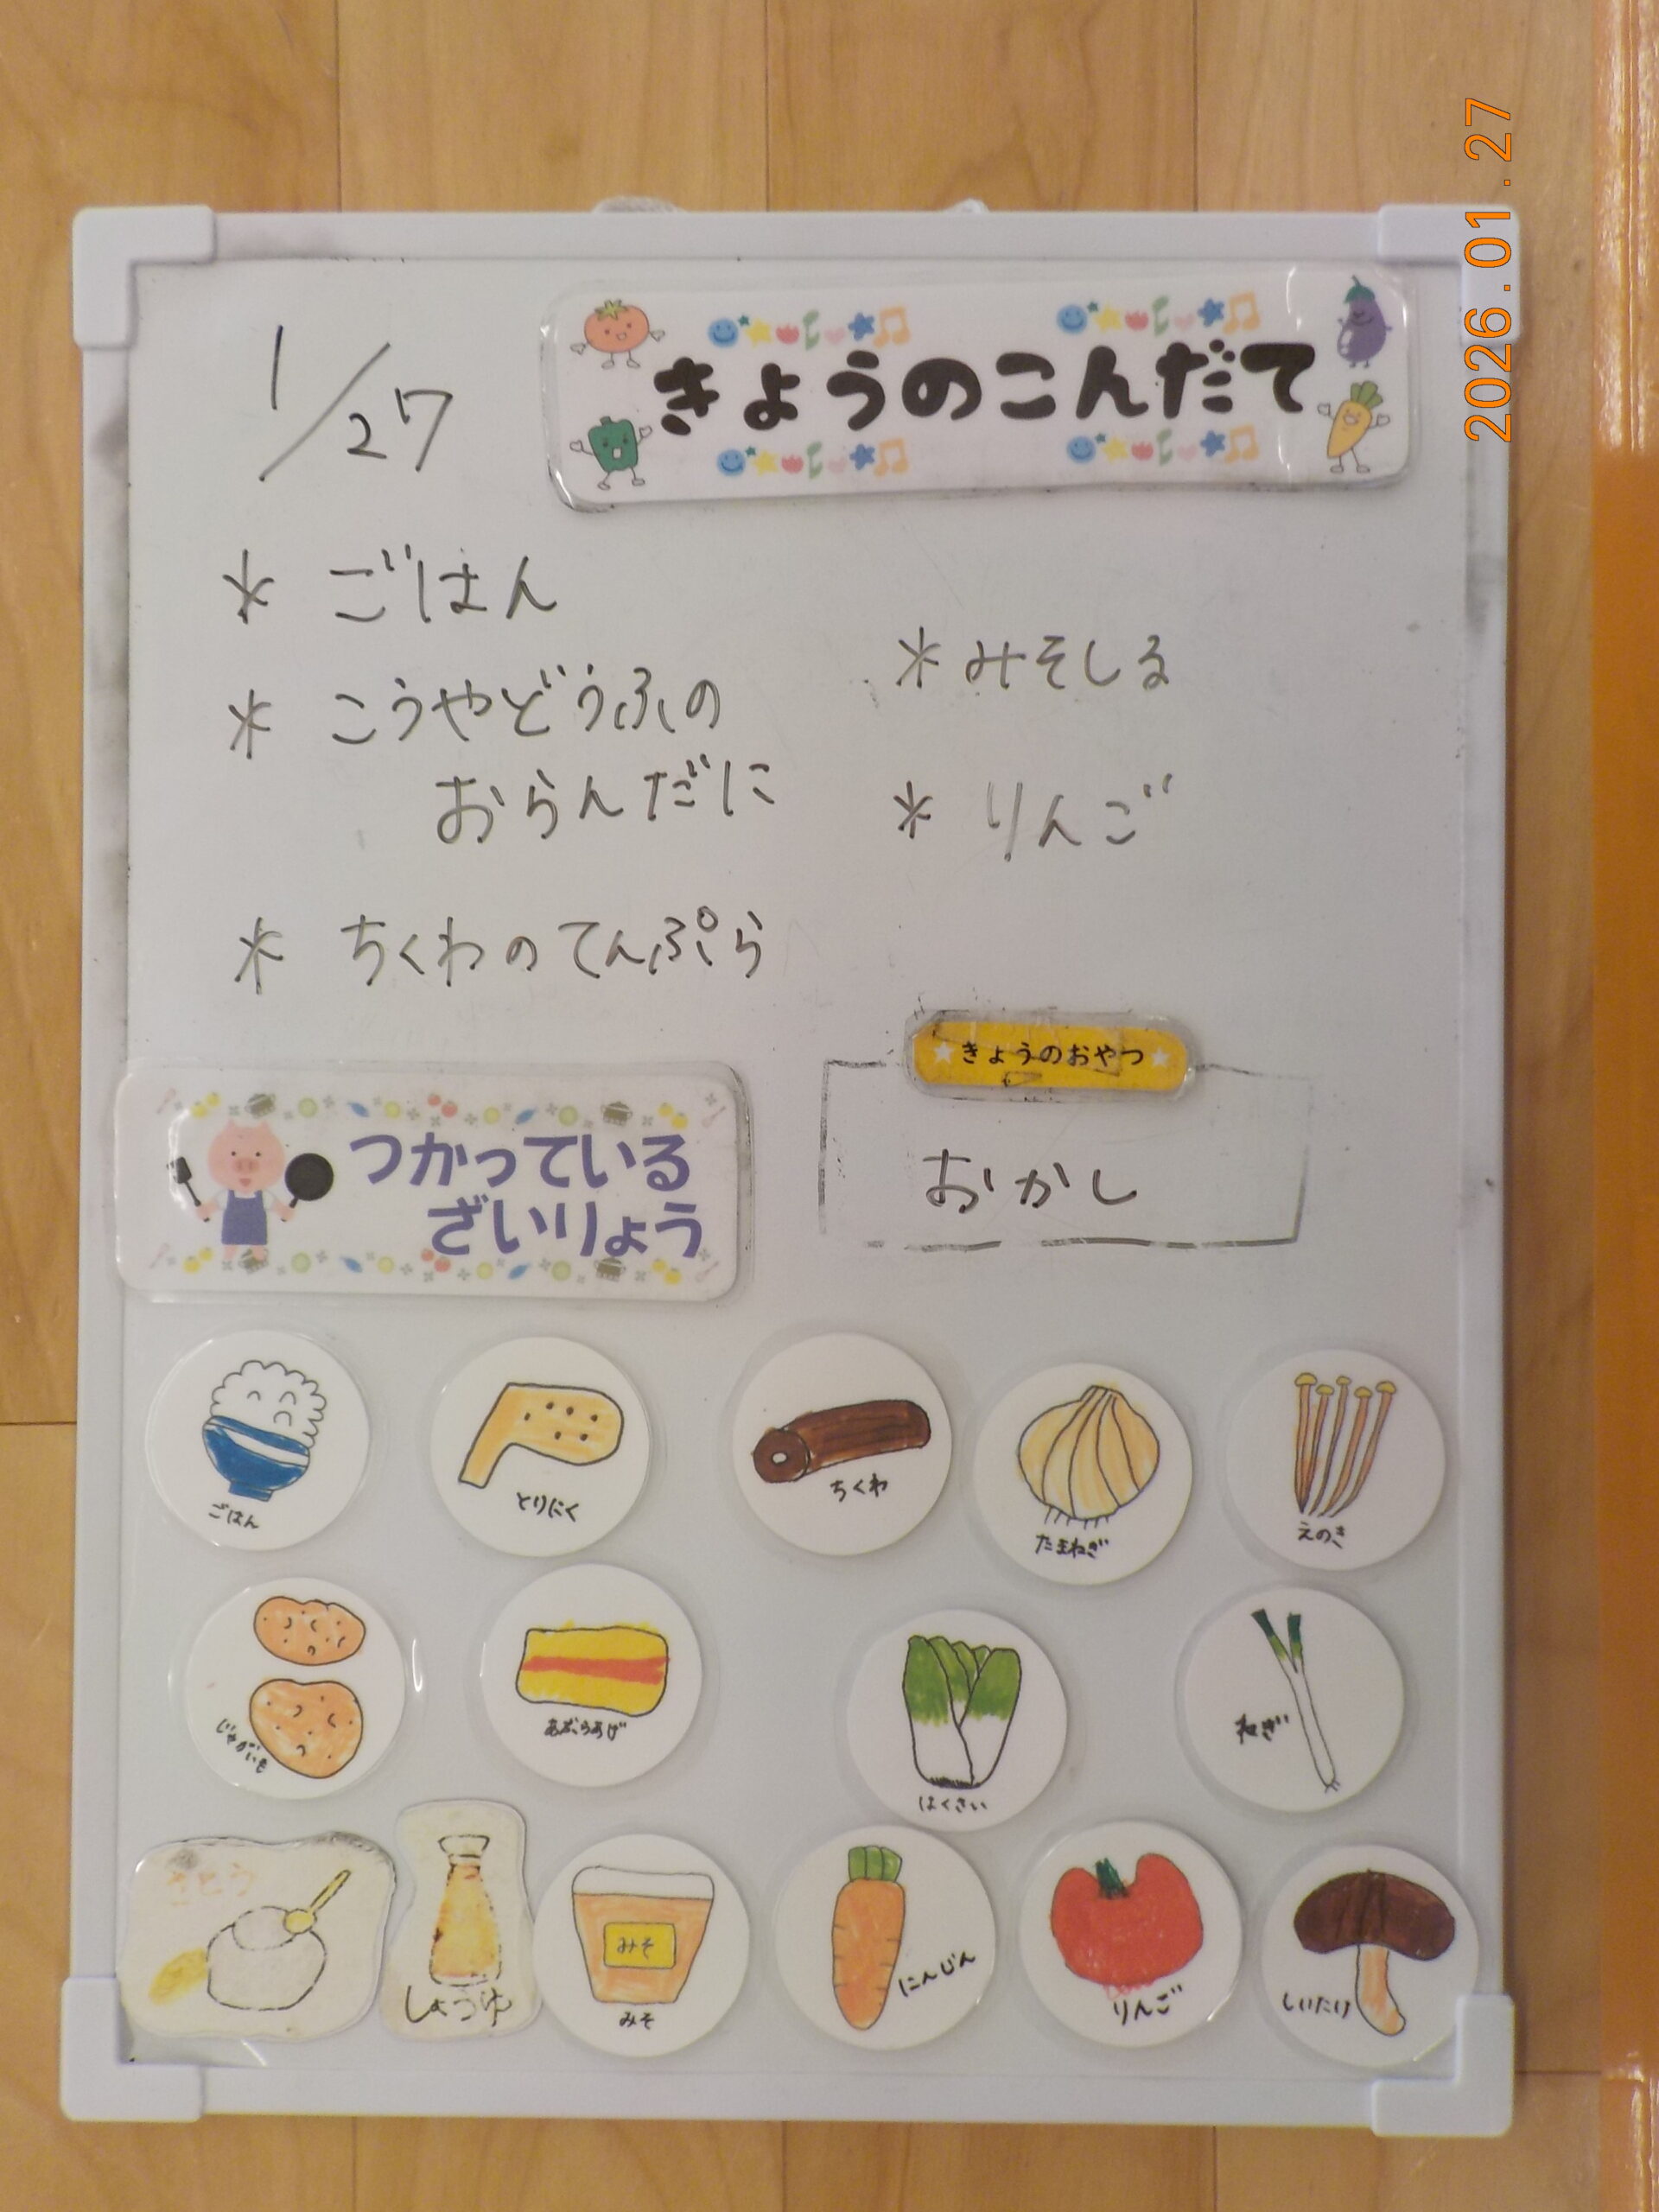 2026.01.27
1/27
きょうのこんだて
* ごはん
* こうやどうふの
おらんだに
* ちくわのてんぷら
* みそしる
* りんご
きょうのおやつ
おかし
つかっている
ざいりょう
ごはん
とりにく
ちくわ
たまねぎ
えのき
じゃがいも
あぶらあげ
はくさい
ねぎ
さとう
しょうゆ
みそ
みそ
にんじん
りんご
しいたけ